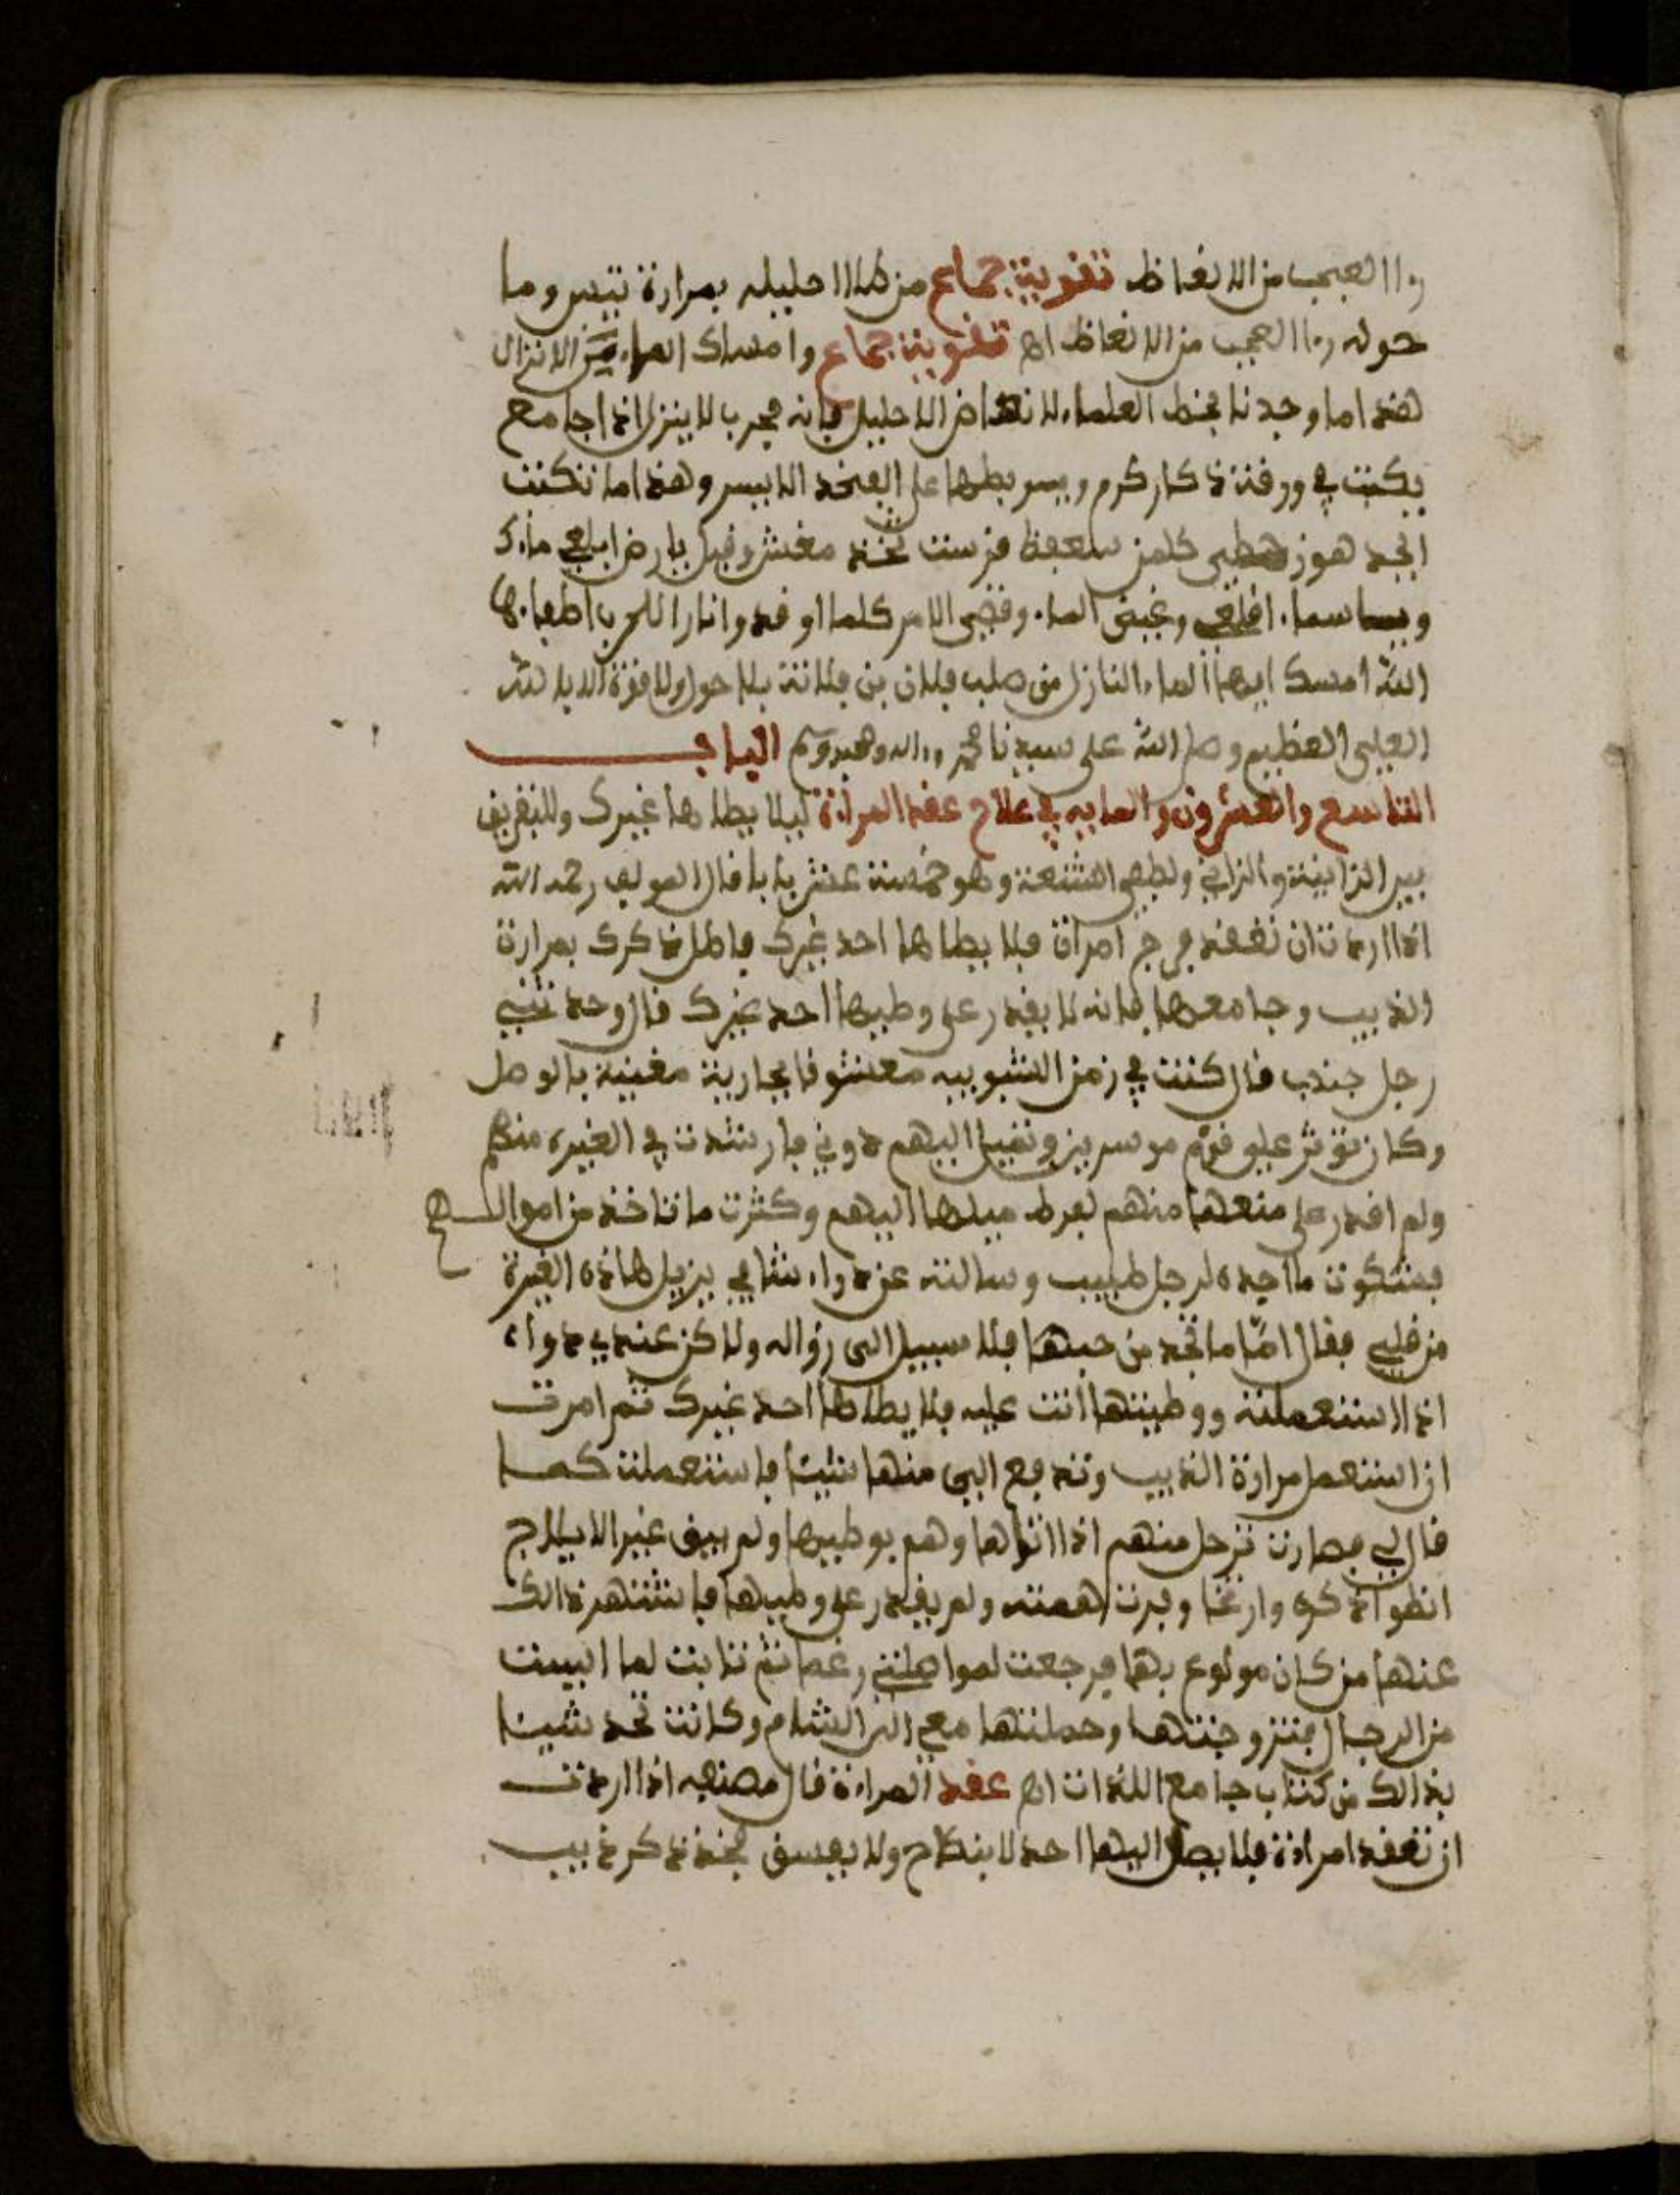 رءا العجب من الانعاظ تقوية جماع من طلا احليله بمرارة تيس وما
حوله رءا العجب من الانعاظ اه تقوية جماع وامساك الماء من الانزال
هذا ما وجدنا بخط العلماء لانهاض الاحليل فانه مجرب لا ينزل اذا جامع
يكتب في ورقة ذكار كرم ويربطها على الفخذ الايسر وهذا ما تكتب
ابجد هوز حطي كلمن سعفظ قرست ثخذ مغش وقيل يا رض ابلعي ماءك
ويا سماء اقلعي وغيض الماء وقضي الامر كلما اوقدوا نارا للحرب اطفاءها
الله امسك ايها الماء النازل من صلب فلان بن فلانة بلا حول ولا قوة الا بالله
العلي العظيم وصلى الله على سيدنا محمد وءاله وصحبه وسلم الباب
التاسع والعشرون والمايه في علاج عقد المرأة ليلا يطاها غيرك وللتفريق
بين الزانية والزاني ولطفي الشنعة وهو خمسة عشر بابا قال المولف رحمه الله
اذا اردت ان تعقد فرج امرأة فلا يطاها احد غيرك فاطل ذكرك بمرارة
الذيب وجامعها فانه لا يقدر على وطيها احد غيرك قال وحدثني
رجل جندي قال كنت في زمن الشبوبيه معشوقا بجارية مغنية بالوصل
وكان توثر علي قوم موسرين وتميل اليهم دوني فارشدت في الغيره منهم
ولم اقدر على منعها منهم لفرط ميلها اليهم وكثرت ما تاخذ من اموالهم
فشكوت ما اجده لرجل طبيب وسالته عن دواء شافي يزيل هاذه الغيرة
من قلبي فقال امّا ما تجد من حبها فلا سبيل الى زواله ولاكن عندي دواء
اذا استعملته ووطيتها انت عليه فلا يطاها احد غيرك ثم امرت
ان استعمل مرارة الذيب وتدفع الي منها شيئا فاستعملت كما
قال لي فصارت ترحل منهم اذا اتوها وهم بوطيها ولم يبق غير الايلاج
انطوا ذكره وارتخا وبرت همته ولم يقدر على وطيها فاشتهر ذالك
عنها من كان مولوع بها فرجعت لمواصلتي رغما ثم تابت لما ايست
من الرجال فتزوجتها وحملتها معي الى الشام وكانت تحد شيئا
بذالك من كتاب جامع اللذات اه عقد المراة قال مصنفه اذا اردت
ان تعقد امراة فلا يصل اليها احد لا بنكاح ولا بفسق فخذ ذكر ذيب